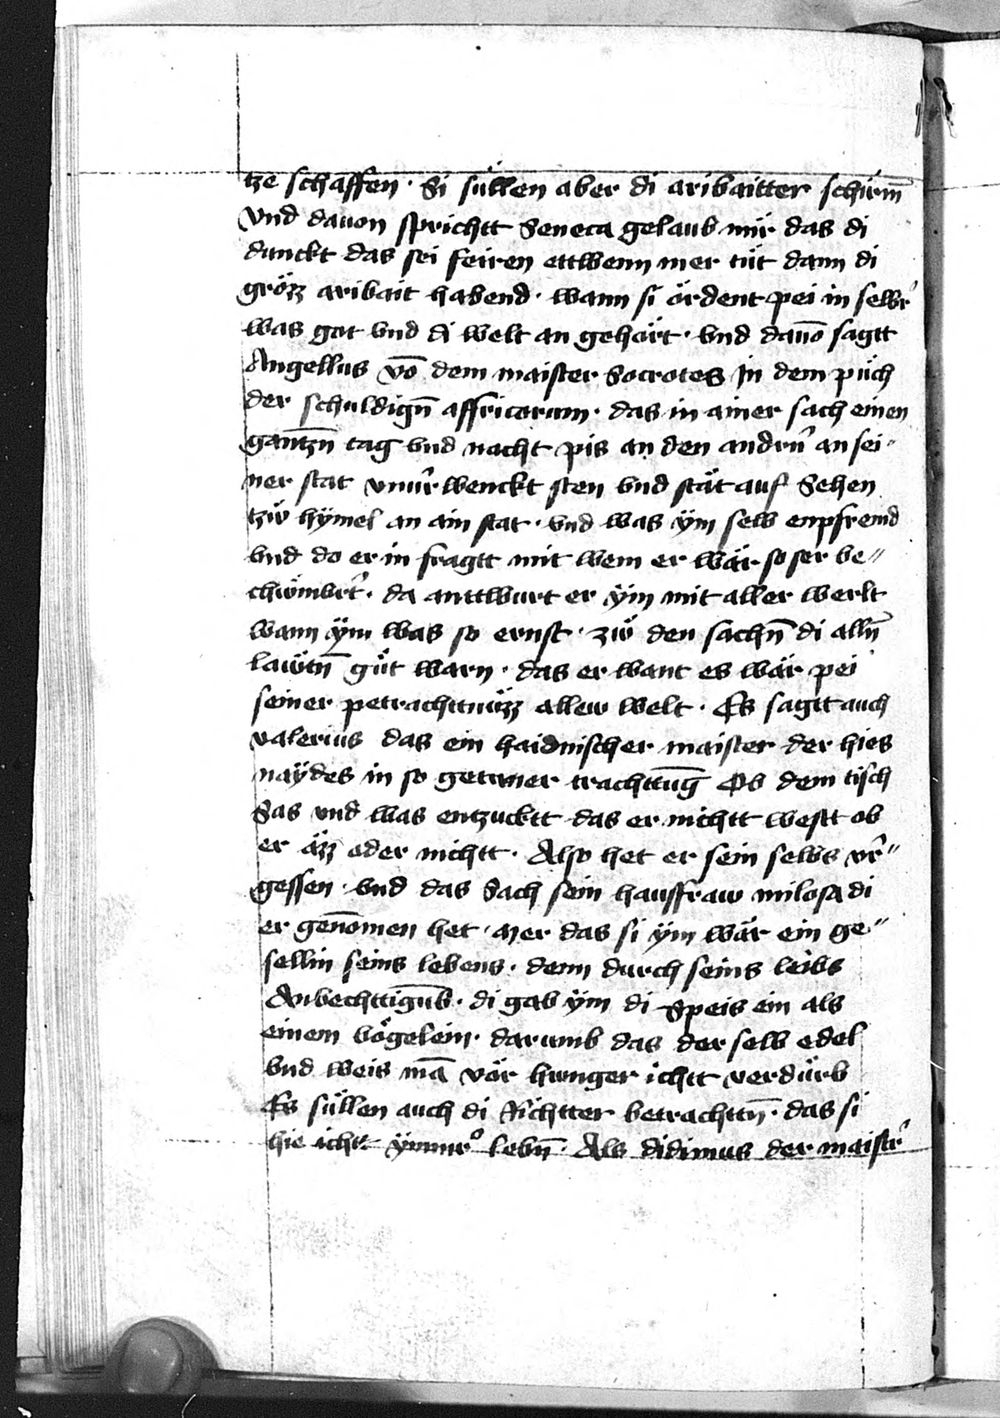 tze schaffen · Si süllen aber di aribaitter schürm̄
vnd dauon sprichtt Seneca gelaub mir das di
danckt das sei feiren ettwenn mer tüt dann di
grözz aribait habend · wann si ördent pei in selbr̄
was got vnd di welt an gehört · vnd dauō sagtt
Angellus vō dem maister Socrotes In dem püch
der schuldign̄ affricorum · das in ainer sach einen
gantzn̄ tag vnd nacht pis an den andrn̄ an sei„
ner stat vnur̄wenckt sten vnd stät auf Sehen
tzw̌ hÿmel an ain stat · vnd was ÿm selb enpfremd
vnd do er in fragtt mit wem er wär so ser be„
chümbrt̄ · da anttwurt er ÿm mit aller werlt
wann ÿm was so ernst · zw̌ den sachn̄ di alln̄
lawtn̄ güt warn · das er want es wär pei
seiner petrachttnüzz allew welt · Es sagtt auch
valerius das ein haidnischer maister der hies
naÿdes in so getaner trachttūg Ob dem tisch
Sas vnd was entzucktt das er nichtt westt ob
er äzz oder nichtt · Also het er sein selbs vr̄„
gessen · vnd das Sach sein hausfraw milosa di
er gen̄omen het · Mer das si ÿm wär ein ge„
sellin seins lebens · denn durch seins leibs
di gab ÿm di Speis ein als
einem vögelein · darumb das der selb edel
vnd weis mā vör hunger ichtt verdürb
Es süllen auch di Richtter betrachttn̄ · das si
hie ichtt ÿmmr̄ lebn̄ · Als didimus der maistr̄